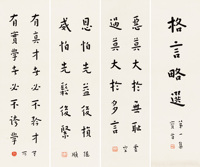 格言略選
第一集
惡莫大於無恥
過莫大於多言
恩怕先益後損
威怕先鬆後緊
有真才者必不矜才
有實學者必不誇學